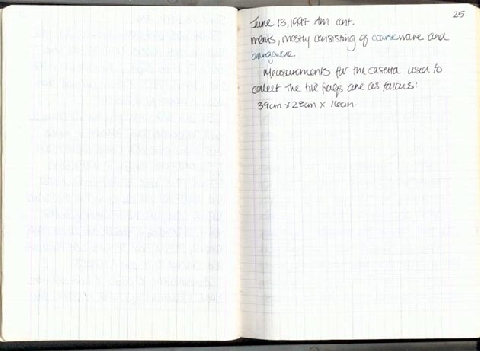 25
June 13, 1997 AM cont.
mens, mostly consisting of coarseware and
Measurements for the casseta used to
collect the tile frags are as follows:
39cm x 28cm x 16cm